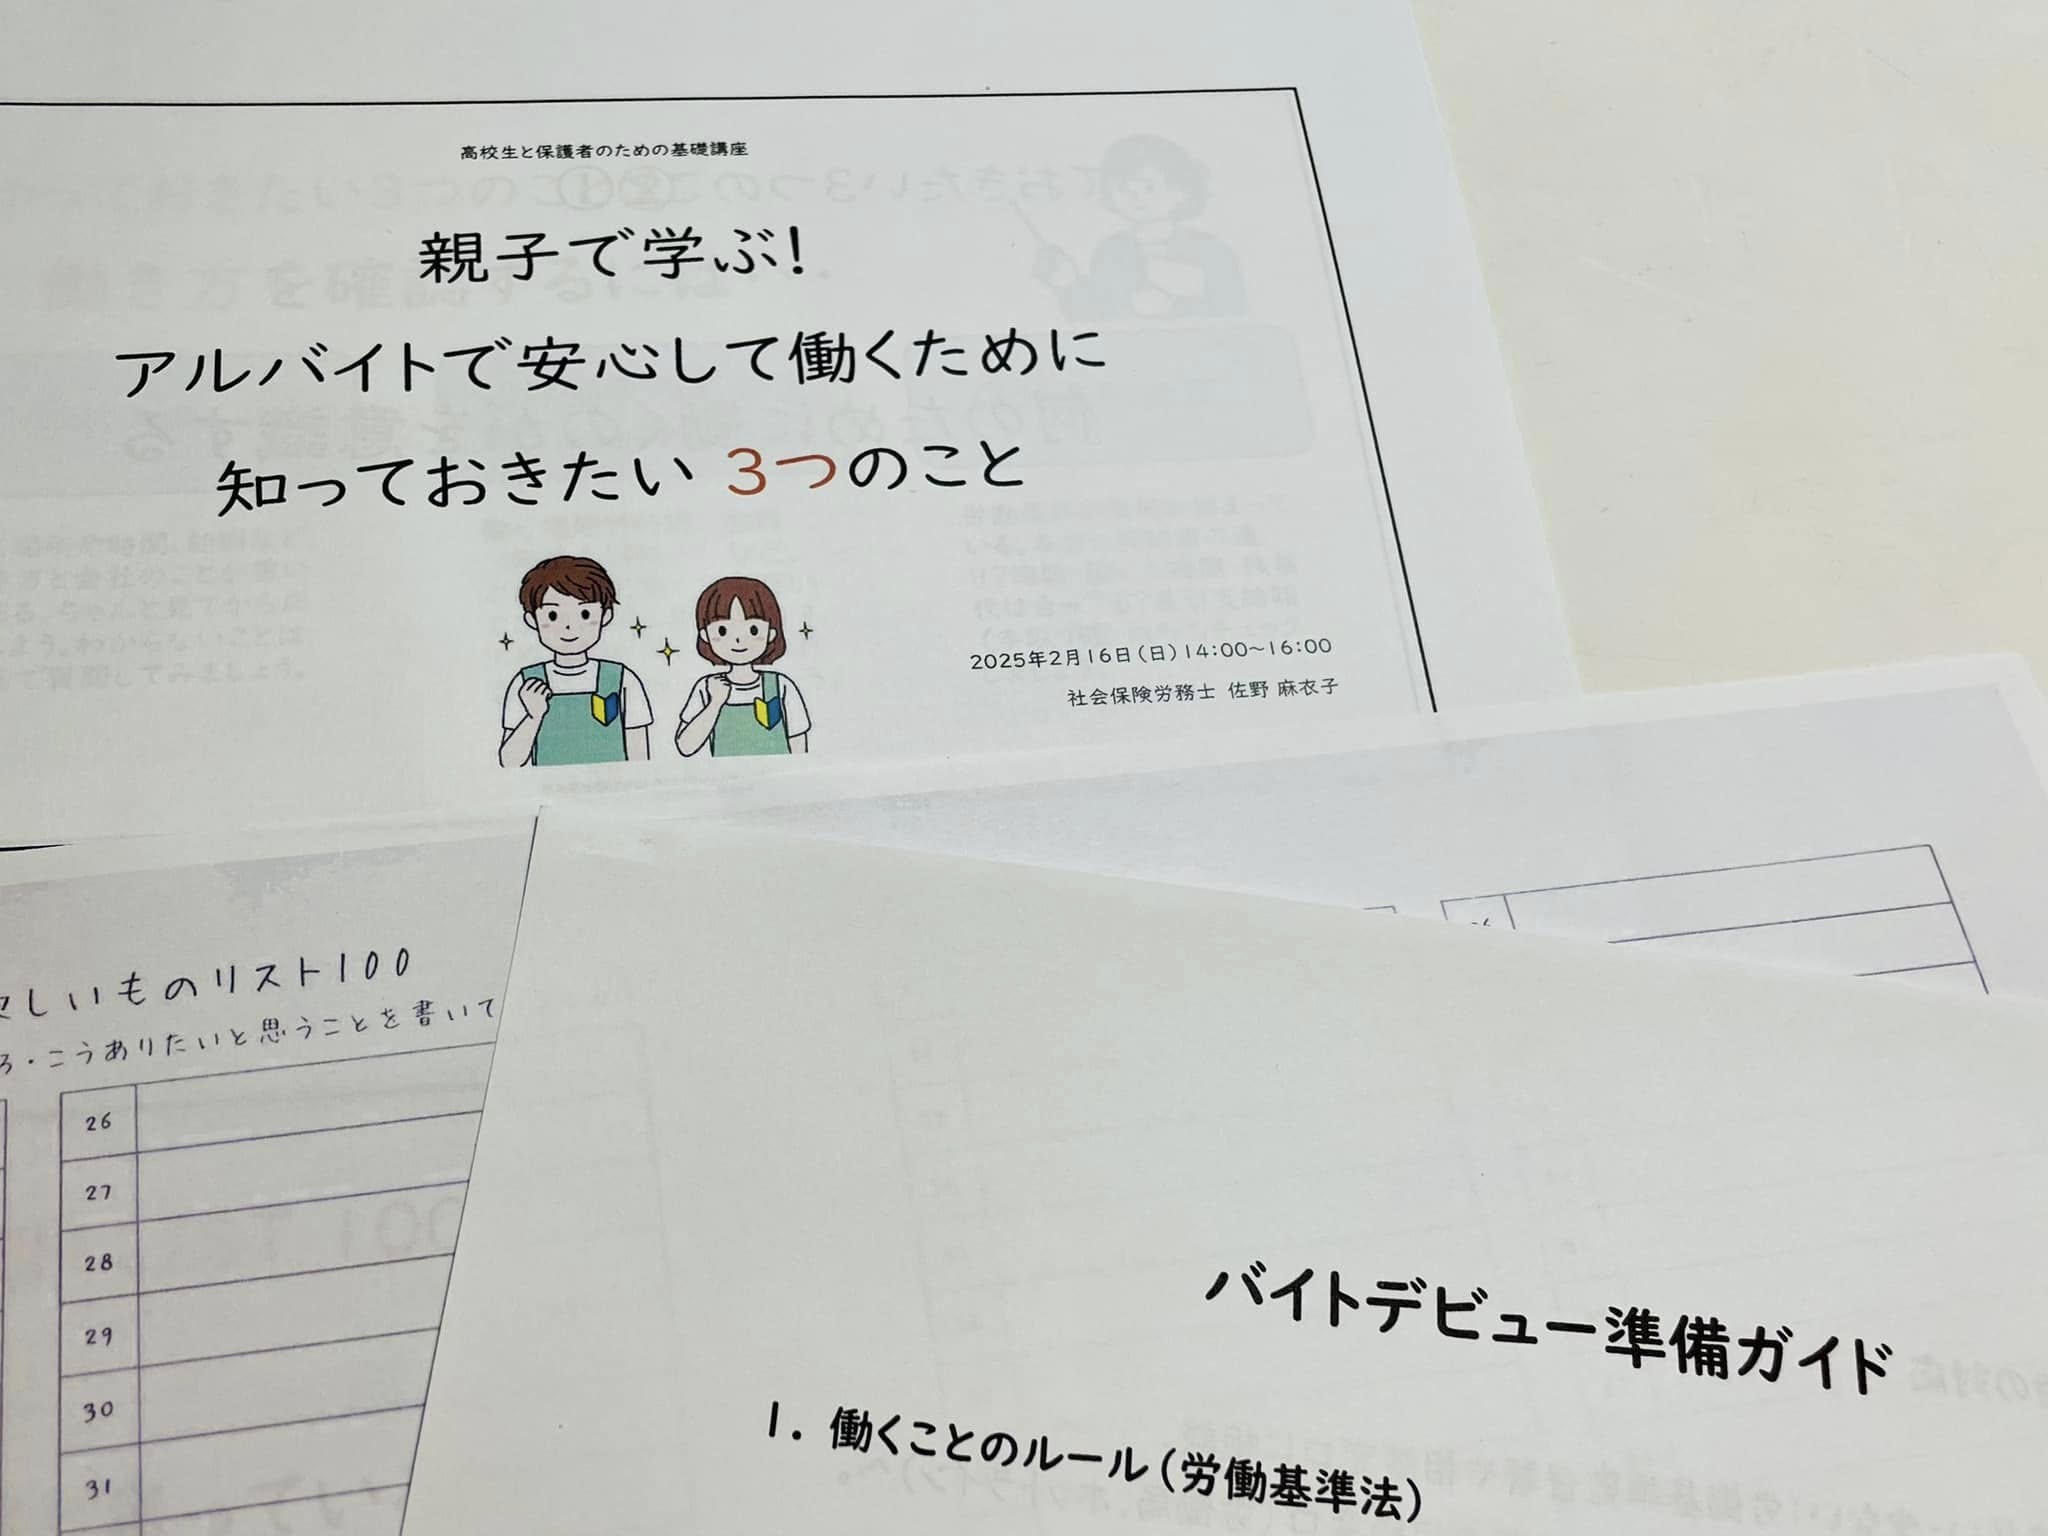 高校生と保護者のための基礎講座
親子で学ぶ!
アルバイトで安心して働くために
知っておきたい 3つのこと
2025年2月16日(日)14:00~16:00
社会保険労務士 佐野 麻衣子
しいものリスト100
・こうありたいと思うことを書いて
26
27
28
29
30
31
バイトデビュー準備ガイド
1. 働くことのルール(労働基準法)